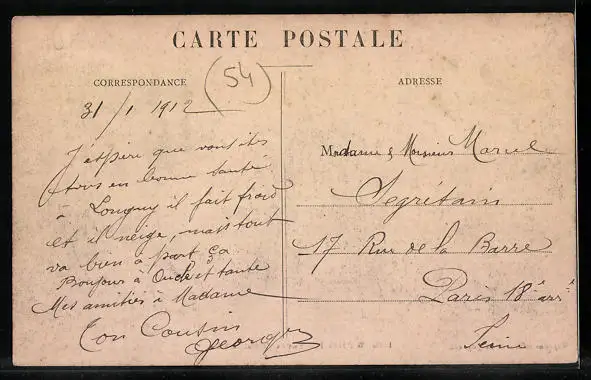 CARTE POSTALE
54
CORRESPONDANCE
ADRESSE
31/1 1912
J'éspère que vous êtes
tous en bonne santé
à Longuy il fait froid
et il neige, mais tout
va bien à part ça
Bonjour à Oncle et tante
Mes amitiés à Madame
Ton Cousin
Georges
Madame & Monsieur Marcel
Segrétain
17 Rue de la Barre
Paris 18è arrt
Seine